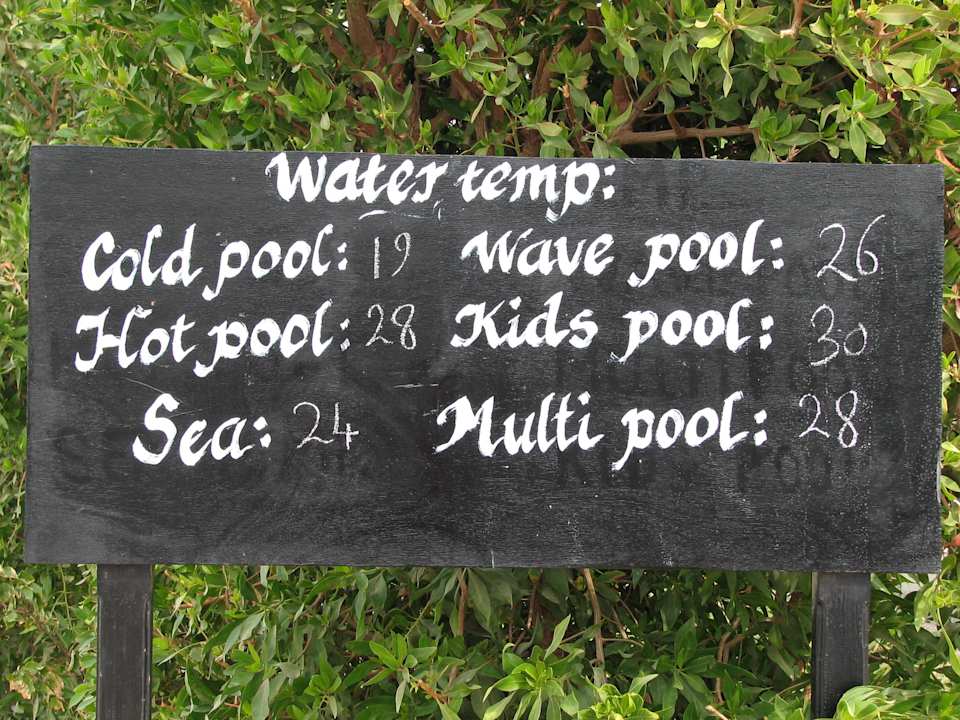 Water temp:
Cold pool: 19 Wave pool: 26
Hot pool: 28 Kids pool: 30
Sea: 24 Multi pool: 28